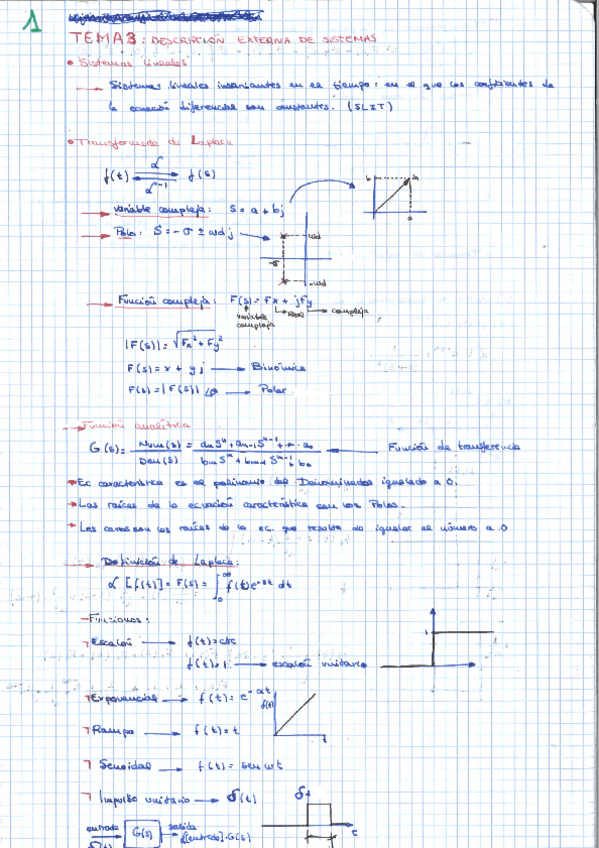 1
TEMA 3: DESCRIPCIÓN EXTERNA DE SISTEMAS
• Sistemas lineales
→ Sistemas lineales invariantes en el tiempo: en el que los coeficientes de
la ecuación diferencial son constantes. (SLIT)
• Transformada de Laplace
f(t) ⇄ f(s)
ℒ
ℒ⁻¹
→ variable compleja: S = a + bj
b
a
→ Polo: S = -σ ± ωd j
ωd
-σ
-ωd
→ Función compleja: F(s) = Fx + jFy
variable compleja
Real
compleja
|F(s)| = √(Fx² + Fy²)
F(s) = x + yj → Binómica
F(s) = |F(s)| → Polar
→ Función analítica
G(s) = Num(s) / Den(s) = ← Función de transferencia
→ Ec característica es el polinomio del Denominador igualado a 0.
→ Las raíces de la ecuación característica son los Polos.
→ Los ceros son las raíces de la ec. que resulta de igualar el número a 0
→ Definición de Laplace:
ℒ [f(t)] = F(s) = ∫₀^∞ f(t) e^-st dt
- Funciones:
Escalón → f(t) = cte
f(t) = 1 → escalón unitario
1
Exponencial → f(t) = e^-αt
f(t)
t
Rampa → f(t) = t
Senoidal → f(t) = sen ωt
Impulso unitario → δ(t)
entrada G(s) salida
ℒ[entrada]·G(s)